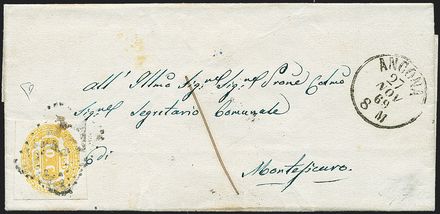 ANCONA
27
NOV
69
8 M
all' Illmo Signel Sigel Prone Colmo
Signel Segretario Comunale
di
Montesicuro.